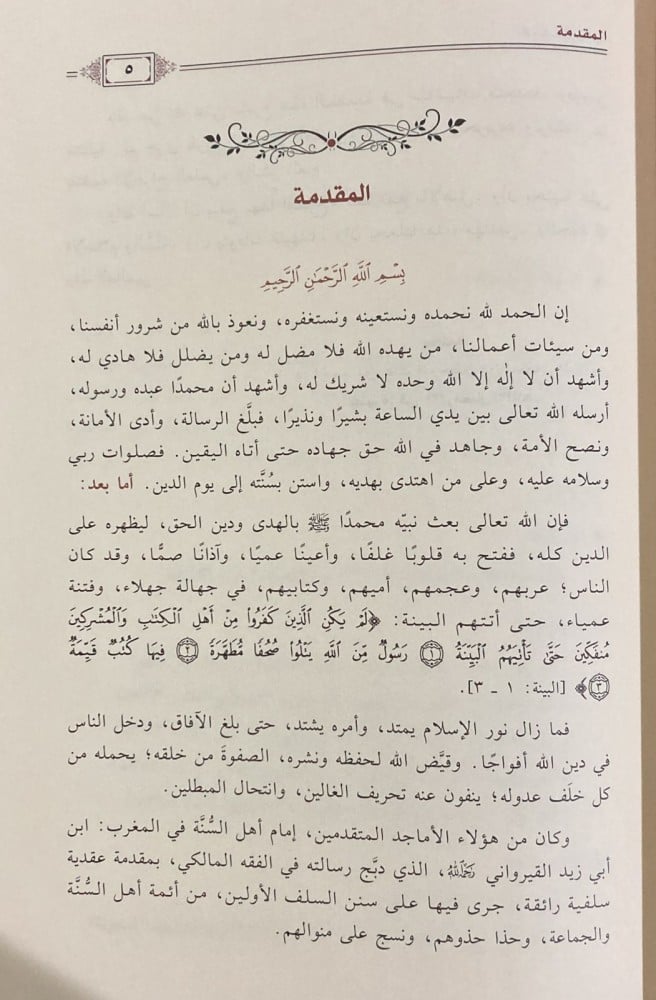 المقدمة
٥
المقدمة
بِسْمِ ٱللَّهِ ٱلرَّحْمَٰنِ ٱلرَّحِيمِ
إن الحمد لله نحمده ونستعينه ونستغفره، ونعوذ بالله من شرور أنفسنا،
ومن سيئات أعمالنا، من يهده الله فلا مضل له ومن يضلل فلا هادي له،
وأشهد أن لا إلٰه إلا الله وحده لا شريك له، وأشهد أن محمدًا عبده ورسوله،
أرسله الله تعالى بين يدي الساعة بشيرًا ونذيرًا، فبلَّغ الرسالة، وأدى الأمانة،
ونصح الأمة، وجاهد في الله حق جهاده حتى أتاه اليقين. فصلوات ربي
وسلامه عليه، وعلى من اهتدى بهديه، واستن بسُنَّته إلى يوم الدين. أما بعد:
فإن الله تعالى بعث نبيّه محمدًا ﷺ بالهدى ودين الحق، ليظهره على
الدين كله، ففتح به قلوبًا غلفًا، وأعينًا عميًا، وآذانًا صمًّا، وقد كان
الناس؛ عربهم، وعجمهم، أميهم، وكتابيهم، في جهالة جهلاء، وفتنة
عمياء، حتى أتتهم البينة: ﴿لَمْ يَكُنِ ٱلَّذِينَ كَفَرُوا۟ مِنْ أَهْلِ ٱلْكِتَٰبِ وَٱلْمُشْرِكِينَ
مُنفَكِّينَ حَتَّىٰ تَأْتِيَهُمُ ٱلْبَيِّنَةُ ۝١ رَسُولٌ مِّنَ ٱللَّهِ يَتْلُوا۟ صُحُفًا مُّطَهَّرَةً ۝٢ فِيهَا كُتُبٌ قَيِّمَةٌ
۝٣﴾ [البينة: ١ ـ ٣].
فما زال نور الإسلام يمتد، وأمره يشتد، حتى بلغ الآفاق، ودخل الناس
في دين الله أفواجًا. وقيَّض الله لحفظه ونشره، الصفوةَ من خلقه؛ يحمله من
كل خلَف عدوله؛ ينفون عنه تحريف الغالين، وانتحال المبطلين.
وكان من هؤلاء الأماجد المتقدمين، إمام أهل السُّنَّة في المغرب: ابن
أبي زيد القيرواني رَحِمَهُ اللَّهُ، الذي دبَّج رسالته في الفقه المالكي، بمقدمة عقدية
سلفية رائقة، جرى فيها على سنن السلف الأولين، من أئمة أهل السُّنَّة
والجماعة، وحذا حذوهم، ونسج على منوالهم.